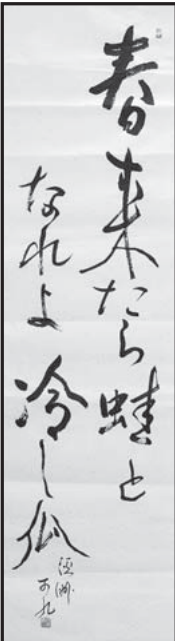 春来たら蛙と
なれよ冷し瓜